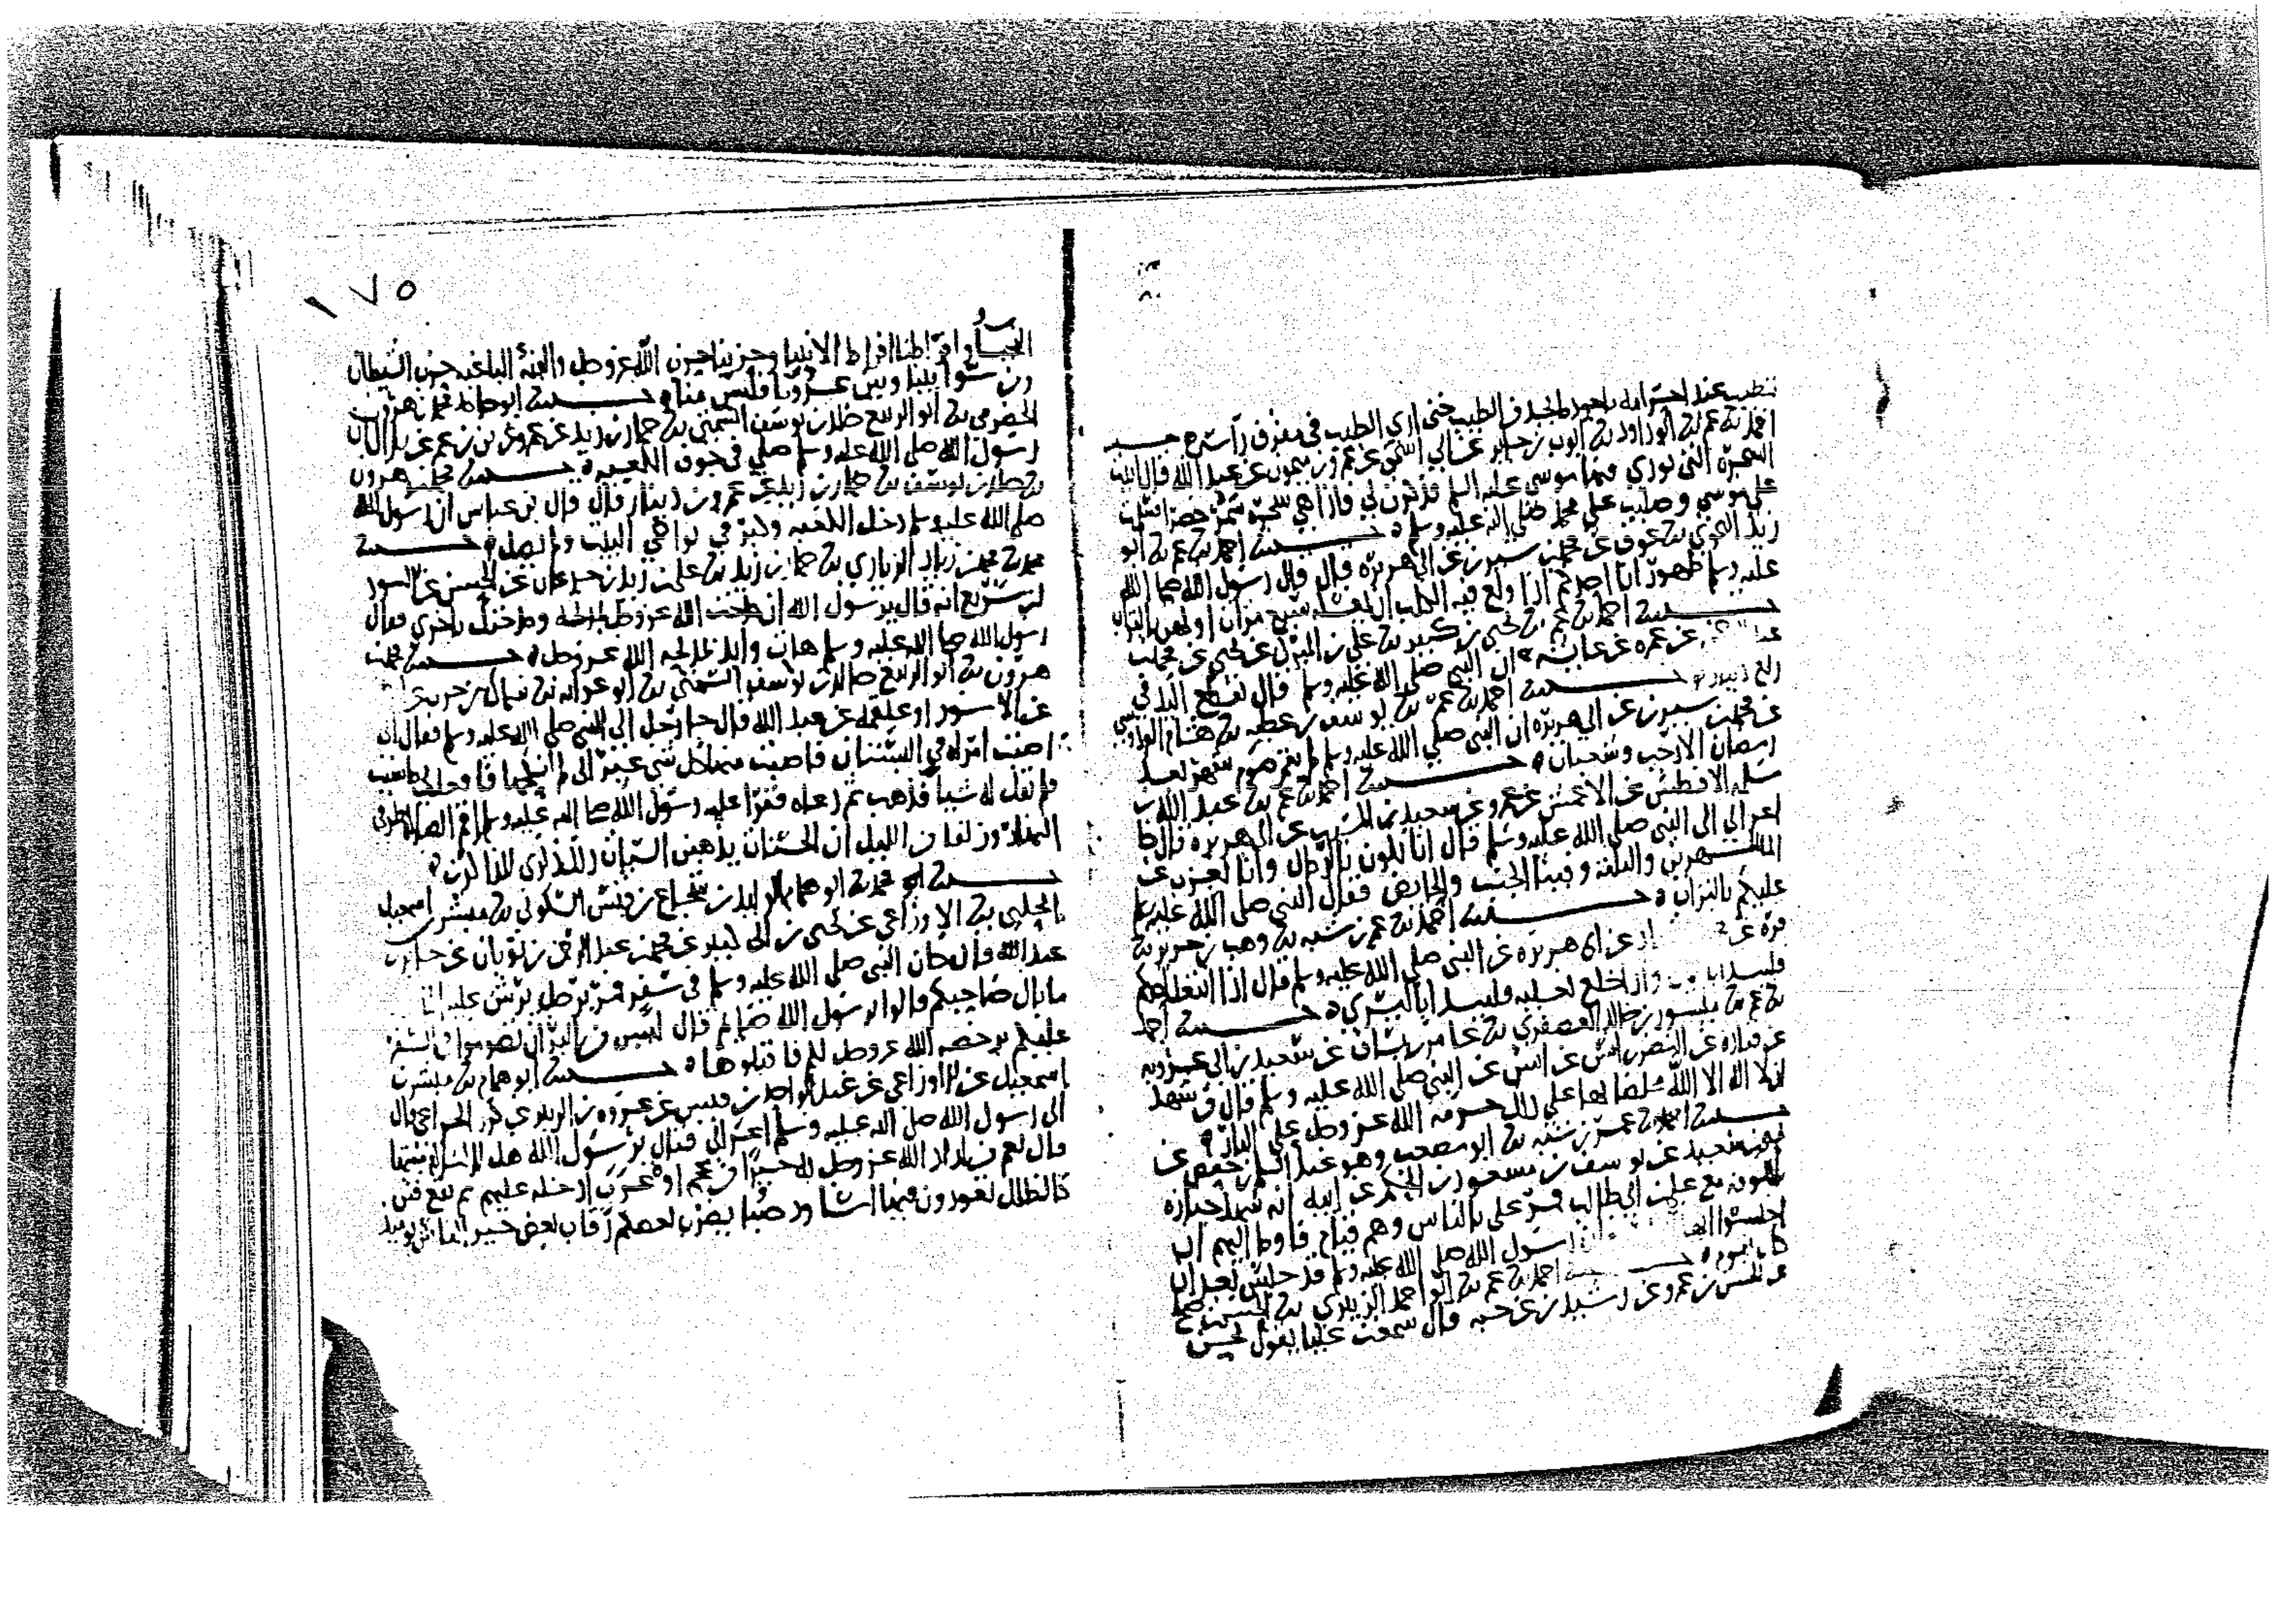 تطيب عند احرامه باجود ما يجد من الطيب حتى ارى الطيب في مفرق راسه حدثنا
احمد نا عمر نا ابو داود نا ايوب بن جابر عن ابي اسحق عن عمرو بن ميمون عن عبد الله قال اتيت
الشجرة التي نودي منها موسى عليه السلم فاذا هي شجرة سمر خضرا فصليت
على موسى وصليت على محمد صلى الله عليه وسلم حدثنا احمد نا عمر نا ابو
زيد النحوي نا عوف عن محمد بن سيرين عن ابي هريرة قال قال رسول الله صلى الله
عليه وسلم طهور انا احدكم اذا ولغ فيه الكلب ان يغسله سبع مرات اولهن بالتراب
حدثنا احمد نا عمر نا يحيى بن كثير نا علي بن المبرك عن يحيى عن محمد بن
عن عمرة عن عايشة ان النبي صلى الله عليه وسلم قال تقطع اليد في
ربع دينار حدثنا احمد نا عمر نا يوسف بن عطية نا هشام الفردوسي
عن محمد بن سيرين عن ابي هريرة ان النبي صلى الله عليه وسلم لم يتم صوم شهر بعد
رمضان الا رجب وشعبان حدثنا احمد نا عمر نا عبد الله بن
سلمة الافطس عن الاعمش عن عمرو عن سعيد بن المسيب عن ابي هريرة قال جا
اعرابي الى النبي صلى الله عليه وسلم قال انا نكون بالرمال وانا نعزب عن
الما الشهرين والثلثة وفينا الجنب والحايض فقال النبي صلى الله عليه وسلم
عليكم بالتراب حدثنا احمد نا عمر بن شبه نا وهب بن جرير نا
قرة عن عن ابي هريرة عن النبي صلى الله عليه وسلم قال اذا انتعل احدكم
فليبدا واذا خلع نعليه فليبدا باليسرى حدثنا احمد
نا عمر نا ميسور بن خالد العصفري نا عامر بن يساف عن سعيد بن ابي عروبة
عن قتادة عن النضر بن انس عن انس عن النبي صلى الله عليه وسلم قال من شهد
ان لا اله الا الله مخلصا بها حرمه الله عز وجل على النار
حدثنا احمد نا عمر بن شبه نا ابو مصعب وهو عبد السلم بن حفص عن
سعيد عن يوسف بن مسعود بن الحكم عن ابيه انه شهد جنازة
بالكوفة مع علي بن ابي طالب فمر علي بالناس وهم قيام فاوما اليهم ان
اجلسوا رسول الله صلى الله عليه وسلم قد جلس بعد ان
كان يقوم حدثنا احمد نا عمر نا ابو احمد الزبيري نا الحسن بن صلح
عن الحسن بن عمرو عن رشيد عن حبه قال سمعت عليا يقول نحن
١٧٥
النجبا وافراطنا افراط الانبيا وحزبنا حزب الله عز وجل والفئة الباغية حزب الشيطان
ومن سوا بيننا وبين عدونا فليس منا حدثنا ابو حامد محمد بن هرون
الحضرمي نا ابو الربيع خالد بن يوسف السمتي نا حماد بن زيد عن عمرو عن بن عمر عن بلال ان
رسول الله صلى الله عليه وسلم صلى في جوف الكعبة حدثنا محمد بن هرون
نا خالد بن يوسف نا حماد بن زيد عن عمرو بن دينار قال قال بن عباس ان رسول الله
صلى الله عليه وسلم دخل الكعبة وكبر في نواحي البيت ولم يصل حدثنا
محمد نا محمد بن زياد الزيادي نا حماد بن زيد نا علي بن زيد بن جدعان عن الحسن عن الاسود
بن سريع انه قال يرسول الله اني مدحت الله عز وجل بمدحة ومدحتك باخرى فقال
رسول الله صلى الله عليه وسلم هات وابدا بمدحة الله عز وجل حدثنا محمد بن
هرون نا ابو الربيع خالد بن يوسف السمتي نا ابو عوانه نا سماك بن حرب عن
عن الاسود او علقمة عن عبد الله قال جا رجل الى النبي صلى الله عليه وسلم فقال اني
اصبت امراة في البستان فاصبت منها كل شي غير اني لم انكحها فافعل بي ما شيت
فلم يقل له شيا فذهب ثم دعاه فقرا عليه رسول الله صلى الله عليه وسلم اقم الصلاة طرفي
النهار وزلفا من الليل ان الحسنات يذهبن السيات ذلك ذكرى للذاكرين
حدثنا محمد نا ابو همام الوليد بن شجاع بن قيس السكوني نا مبشر بن اسمعيل
الحلبي نا الاوزاعي عن يحيى بن ابي كثير عن محمد بن عبد الرحمن بن ثوبان عن جابر بن
عبد الله قال كان النبي صلى الله عليه وسلم في سفر فمر برجل يرش عليه الما
ما بال صاحبكم قالوا يرسول الله صايم قال ليس من البر ان تصوموا في السفر
عليكم برخصه الله عز وجل لكم فاقبلوها حدثنا ابو همام نا مبشر بن
اسمعيل عن الاوزاعي عن عبد الواحد بن قيس عن عروة بن الزبير عن كرز الخزاعي قال
اتى رسول الله صلى الله عليه وسلم اعرابي فقال يرسول الله هل للاسلم منتهى
قال نعم من اراد الله عز وجل به خيرا من عجم او عرب ادخله عليهم ثم تقع فتن
كالظلل تعودون فيها اساود صبا يضرب بعضكم رقاب بعض خير الناس يوميذ